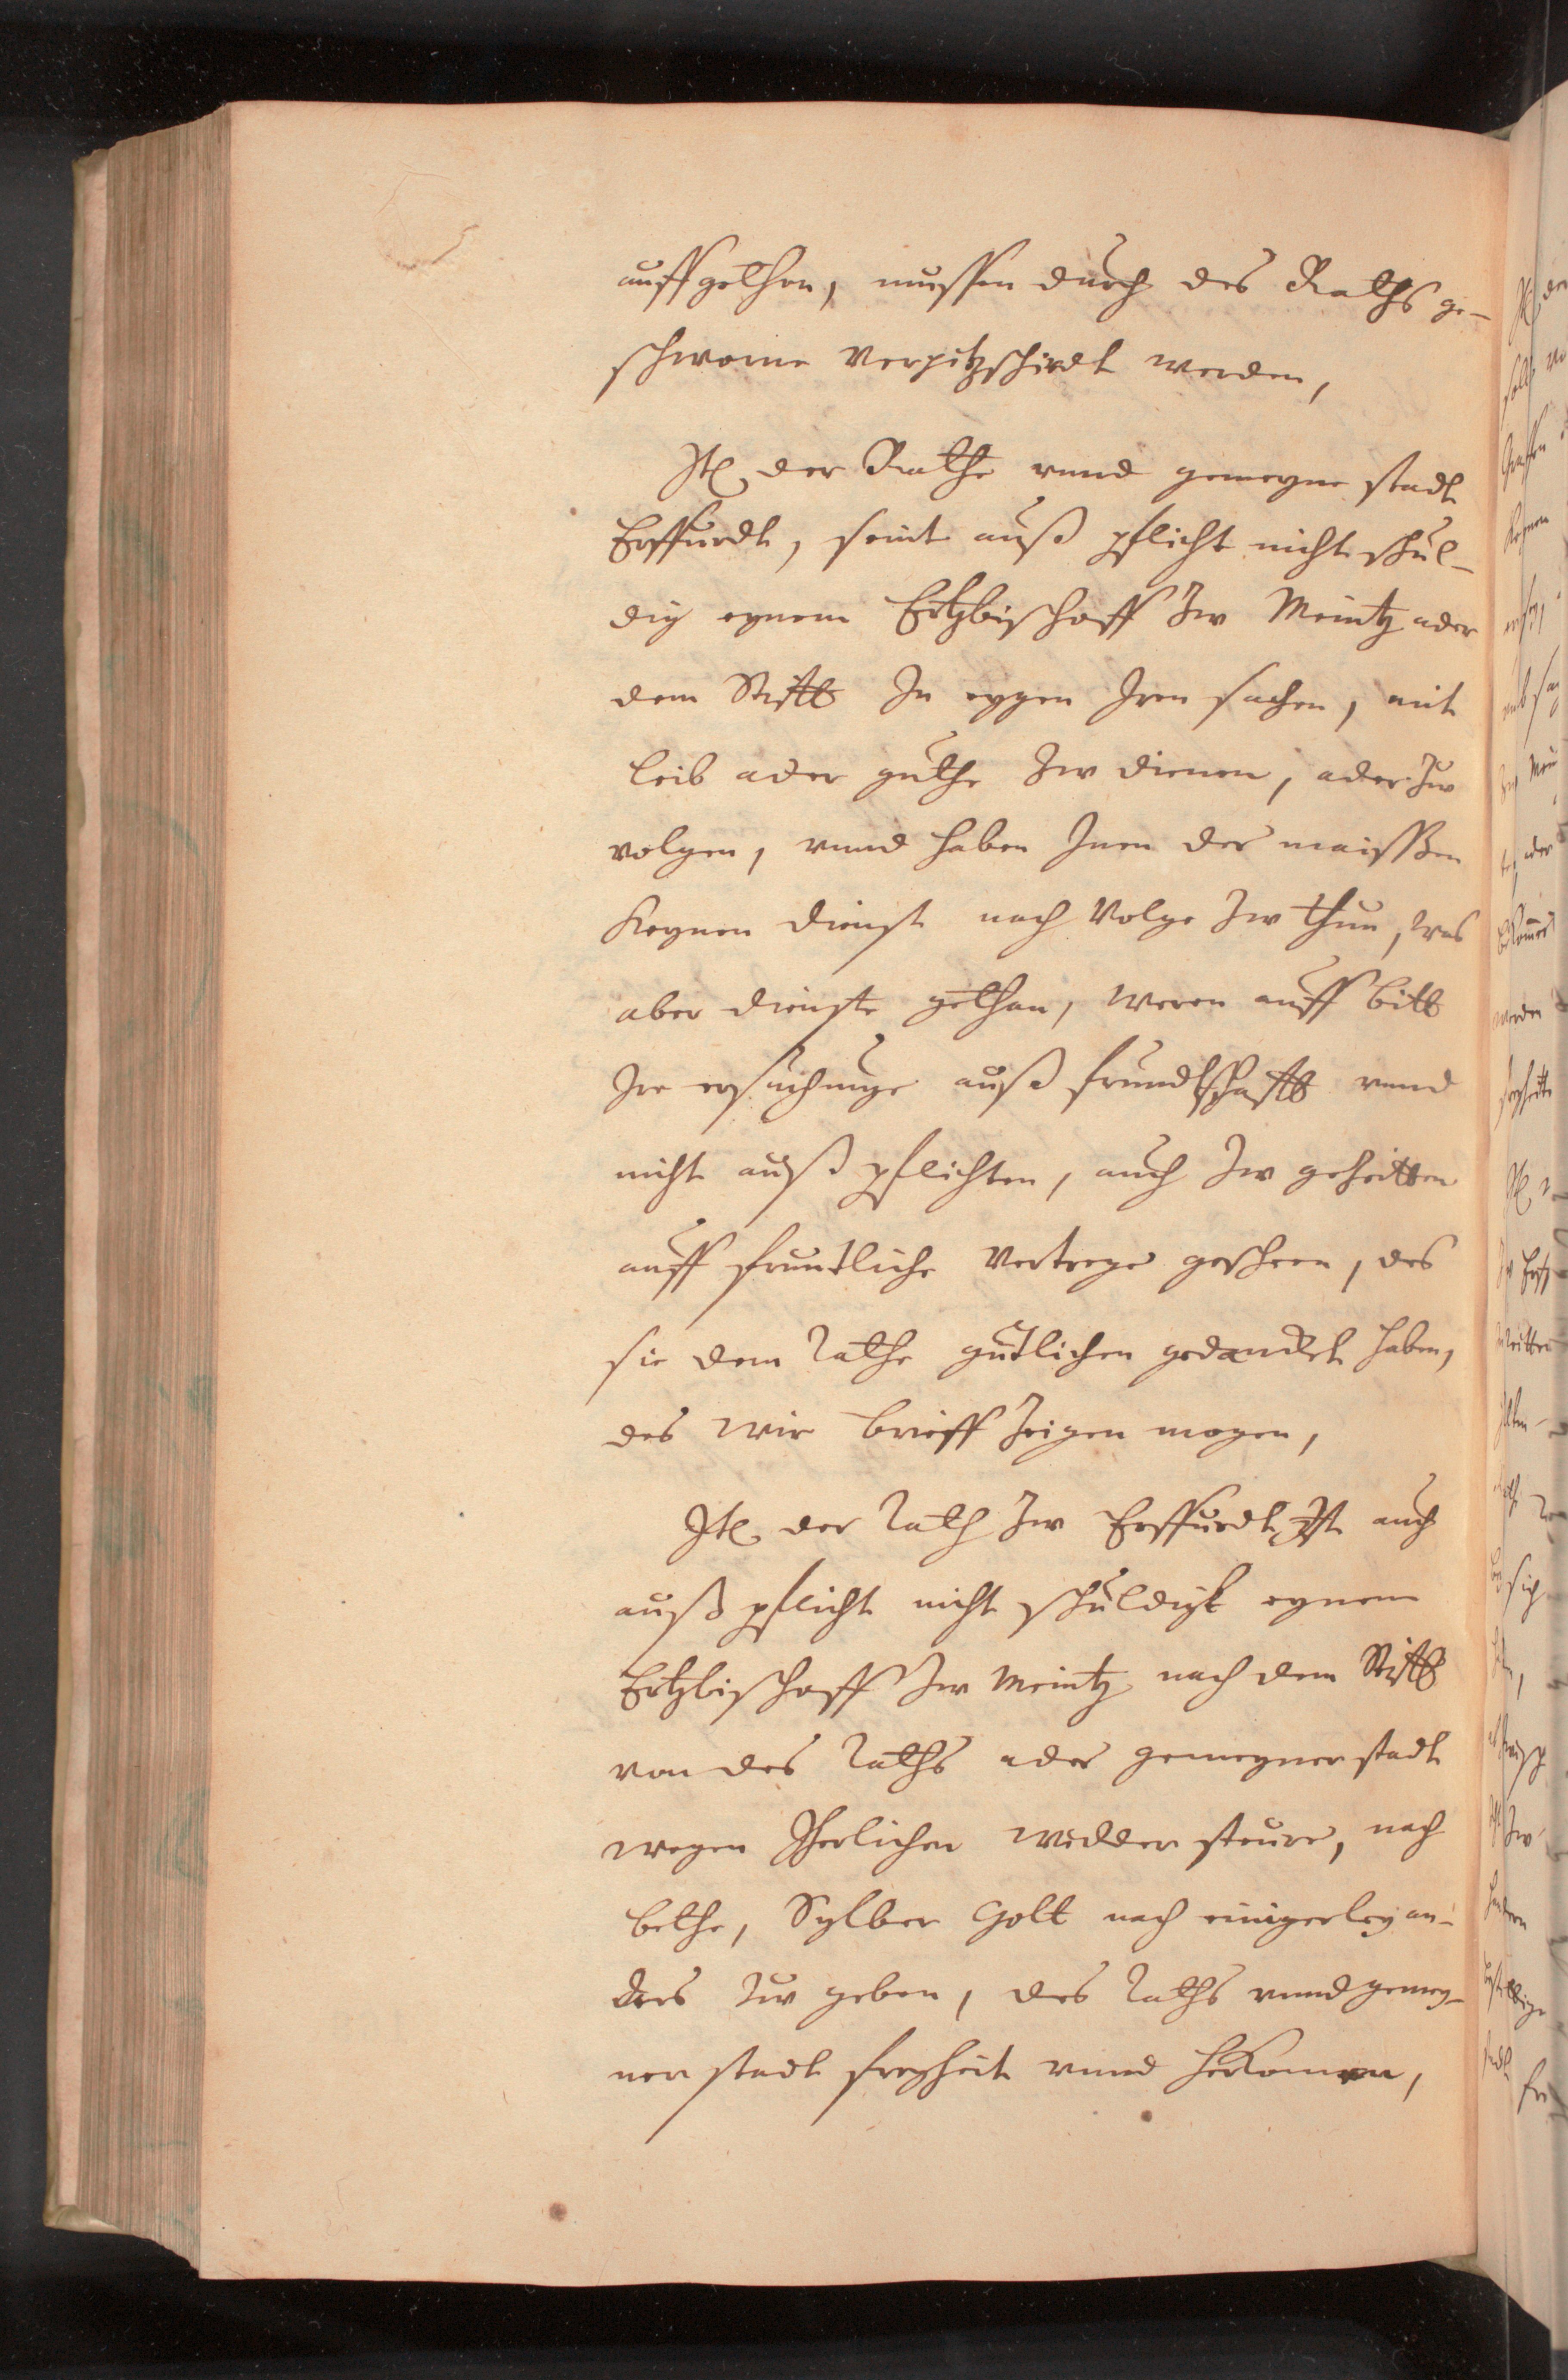 auffgethon, mussen durch des Raths ge-
schworne verpitzschirdt werden,
Itē der Rathe vnnd gemeyne stadt
Erffurdt, seint auß pflicht nicht schul-
dig eynem Ertzbischoff Zw Meintz ader
dem Stifft In eygen Iren sachen, mit
leib ader guthe Zw dienen, ader Zw
volgen, vnnd haben Inen der maissßen
keynen dienst nach Volge Zw thun, was
aber dienste gethan, weren auff bitt
Ire ersuchunge auß frundtschafft vnnd
nicht auß pflichten, auch Zw geheitten
auff fruntliche Vertrege gescheen, des
sie dem Rathe gutlichen gedanckt haben,
des wir brieff Zeigen mogen,
Itē der Rath Zw Erffurdt Ist auch
auß pflicht nicht schuldigk eynem
Ertzbischoff Zw Meintz nach dem Stifft
von des Raths ader gemeyner stadt
wegen Iherlichen widder steure, nach
bethe, Sylber Golt nach einigerley an-
ders Zw geben, des Raths vnnd gemey-
ner stadt freyheit vnnd herkomen,